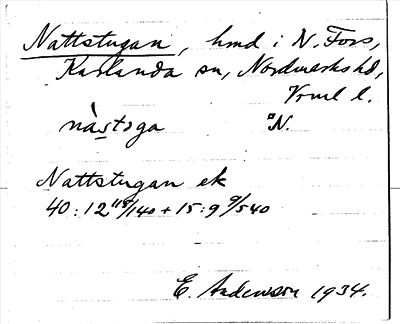 Nattstugan, hmd i N. Fors,
Karlanda sn, Nordmarks hd,
Vrml l.
nàstoga ¤N.
Nattstugan ek
40:12 118/140 + 15:9 9/540
E. Andersson 1934.